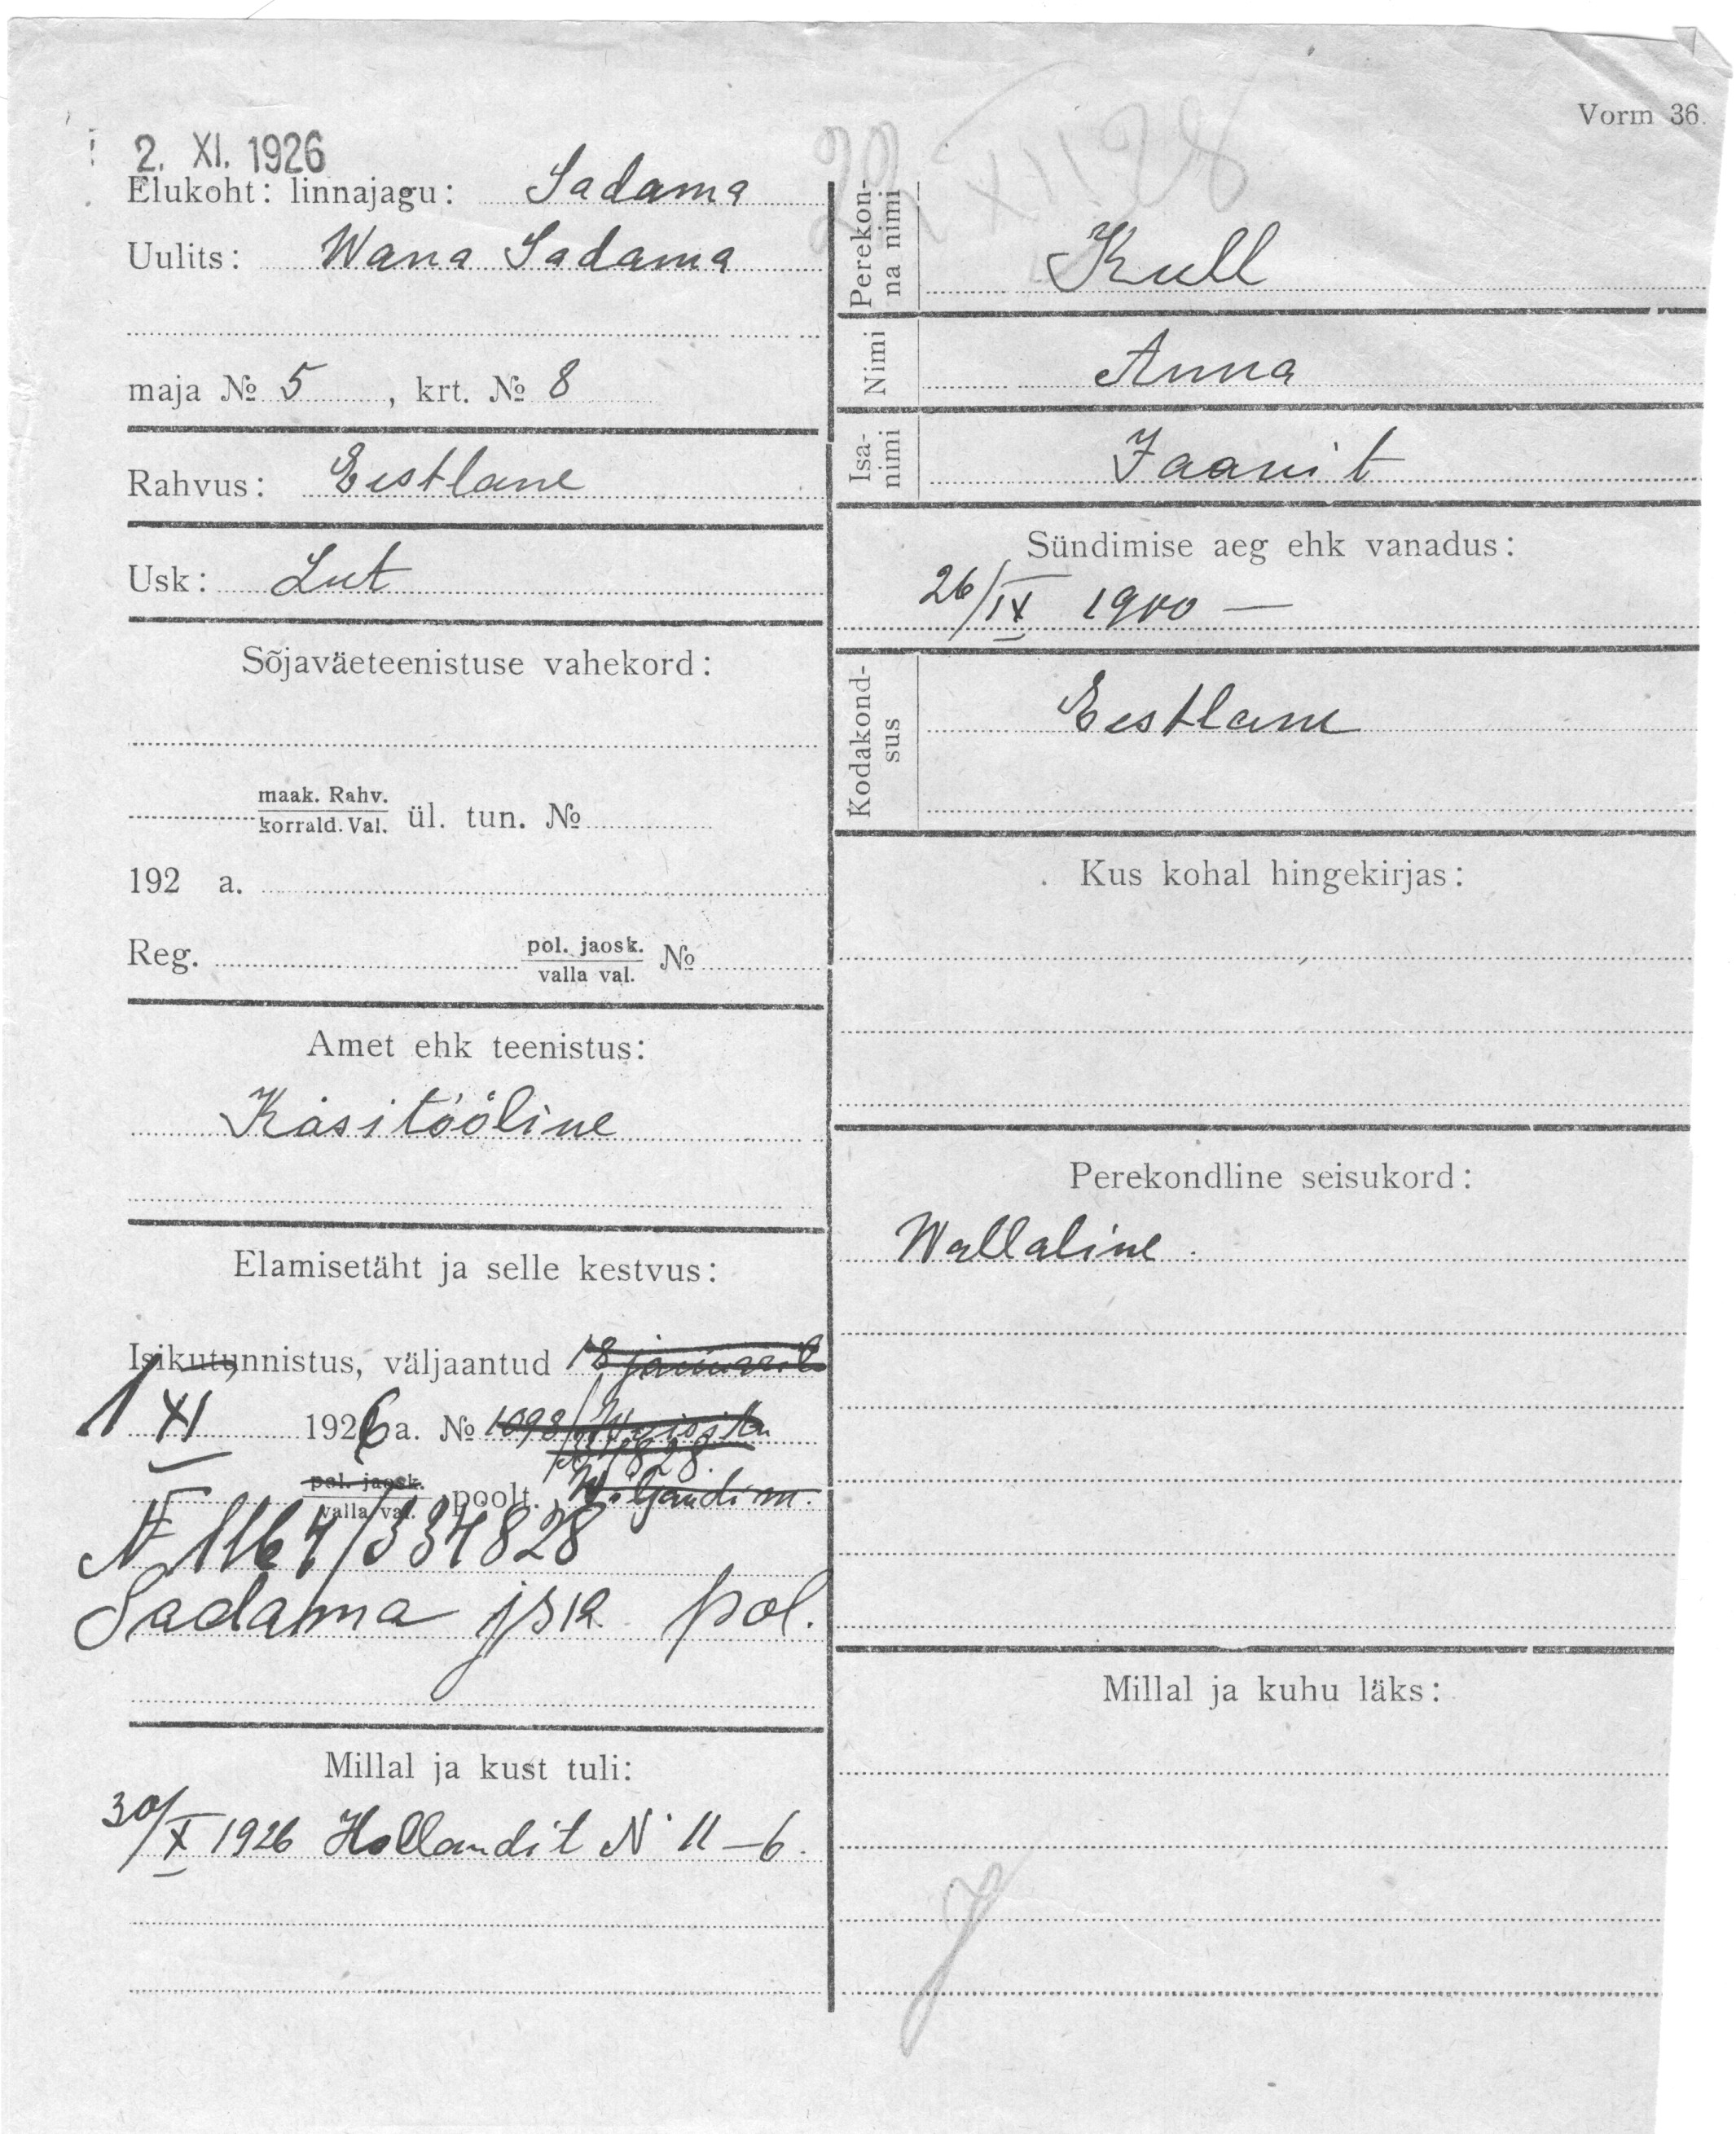 Vorm 36.
2. XI. 1926
Elukoht: linnajagu: Sadama
Uulits: Wana Sadama
maja № 5, krt. № 8
Rahvus: Eestlane
Usk: Lut
Sõjaväeteenistuse vahekord:
maak. Rahv.
korrald. Val. ül. tun. №
192 a.
Reg. pol. jaosk.
valla val. №
Amet ehk teenistus:
Käsitööline
Elamisetäht ja selle kestvus:
Isikutunnistus, väljaantud 18 jaanuaril
1 XI 1926 a. № 1098/
pol. jaosk.
valla val. poolt. Wiljandi m.
N 1164/334828
Sadama jsk. pol.
Millal ja kust tuli:
30/X 1926 Hollandit N 11-6.
29 XII 28
Perekon-
na nimi Kull
Nimi Anna
Isa-
nimi Jaani t
Sündimise aeg ehk vanadus:
26/IX 1900 —
Kodakond-
sus Eestlane
Kus kohal hingekirjas:
Perekondline seisukord:
Wallaline.
Millal ja kuhu läks: